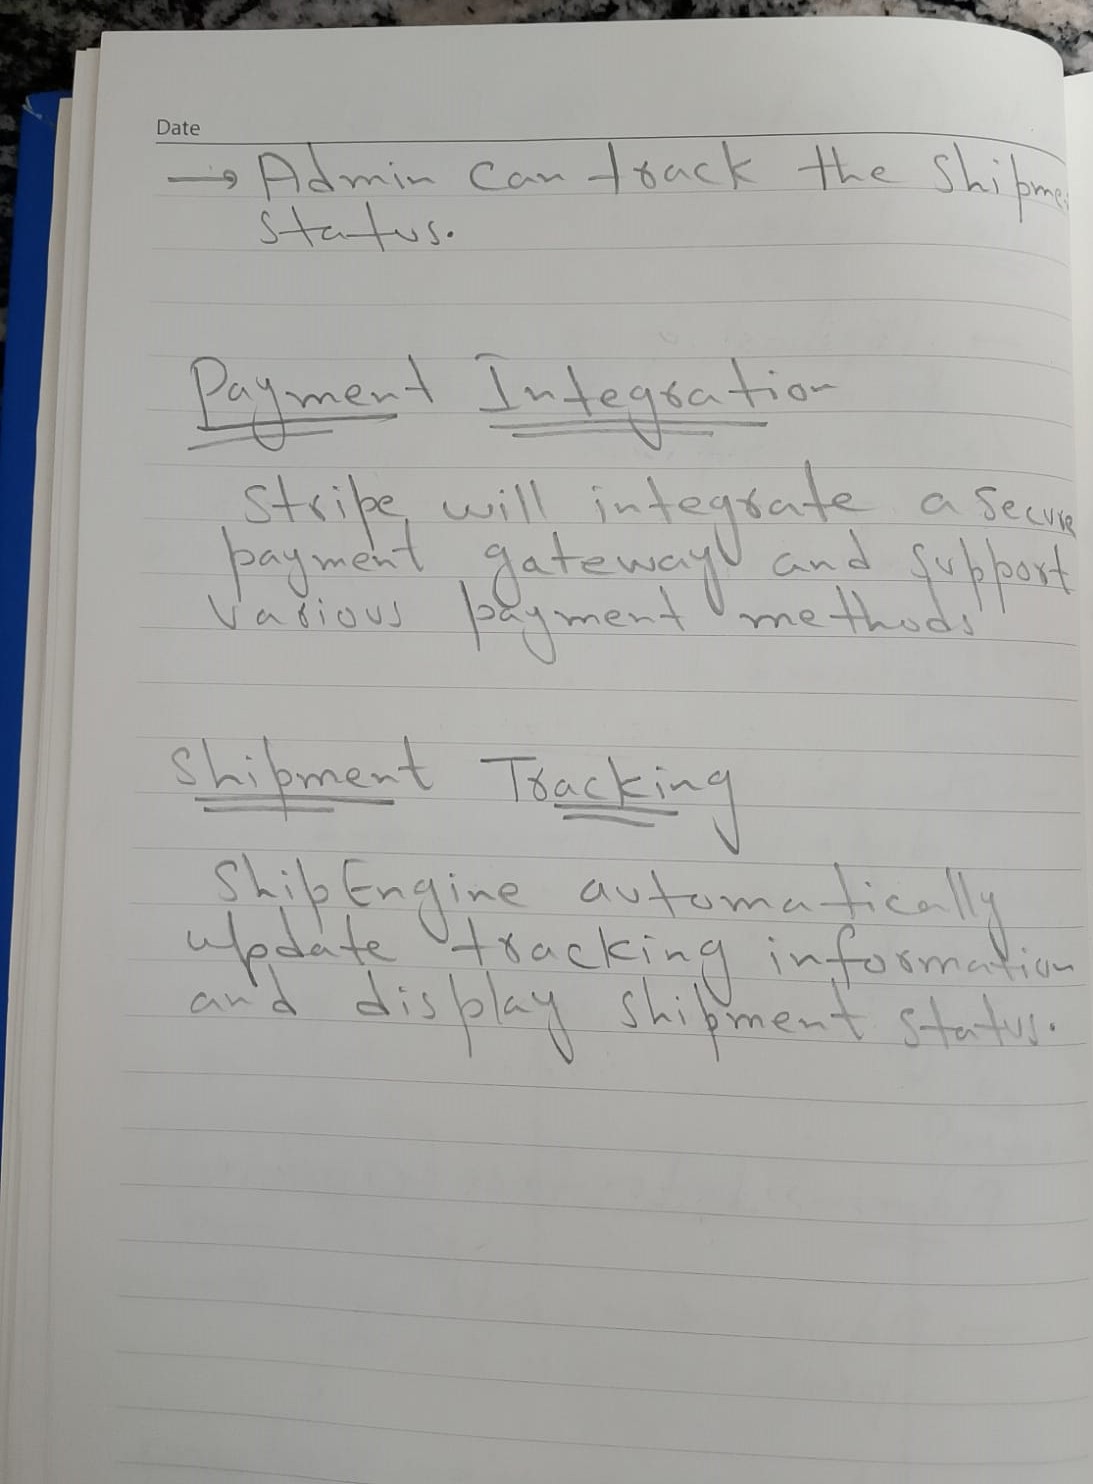 Date
→ Admin can track the Shipme
status.
Payment Integration
Stripe will integrate a secure
payment gateway and support
various payment methods
Shipment Tracking
ShipEngine automatically
update tracking information
and display shipment status.